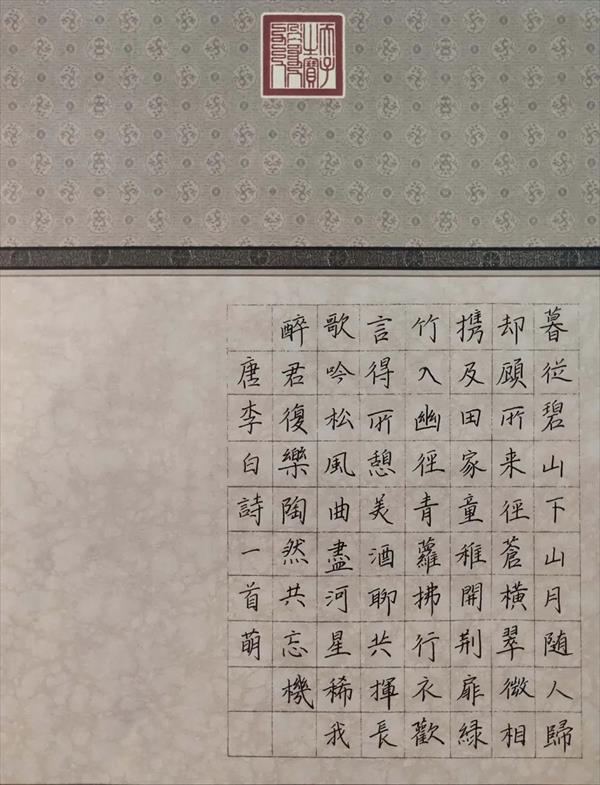 天子之寶
暮從碧山下山月随人歸
却顧所来徑蒼橫翠微相
携及田家童稚開荆扉緑
竹入幽徑青蘿拂行衣歡
言得所憩美酒聊共揮長
歌吟松風曲盡河星稀我
醉君復樂陶然共忘機
唐李白詩一首萌